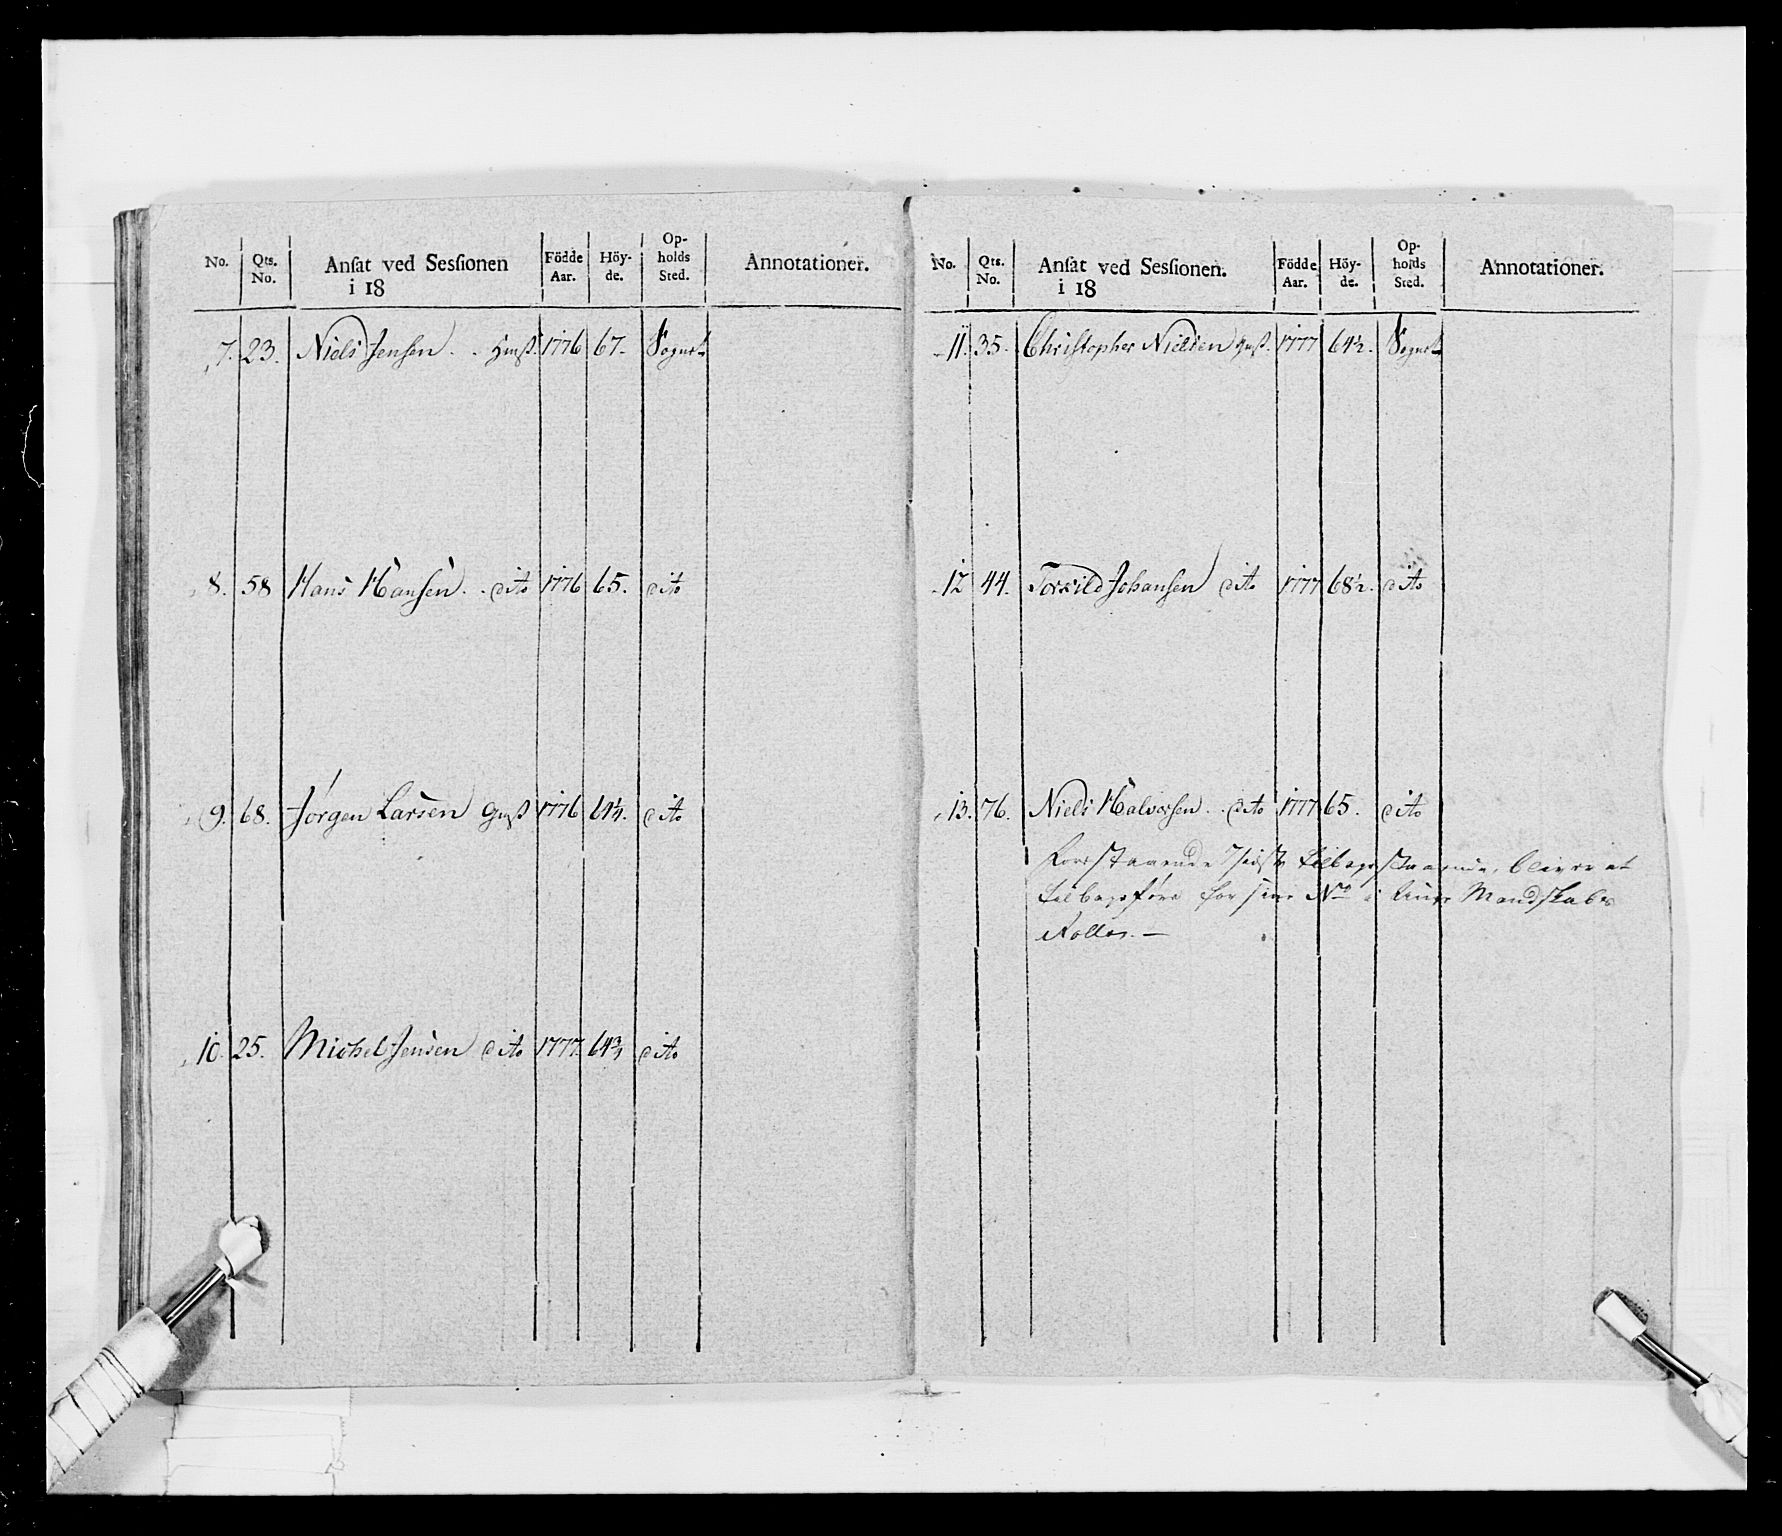 No. Qts. No. Ansat ved Sessionen i 18 Födde Aar. Höy-de. Op-holds Sted. Annotationer.
7. 23. Niels Jensen 1776 67. Sognet
8. 58 Hans Hansen. dito 1776 65. dito
9. 68. Jørgen Larsen 1776 64¼. dito
10. 25. Michel Jensen dito 1777. 64¾ dito
No. Qts. No. Ansat ved Sessionen. i 18 Födde Aar. Höy-de. Op-holds Sted. Annotationer.
11. 35. Christopher Nielsen 1777 64½. Sognet
12 44. Torkild Johansen dito 1777 68½. dito
13. 76. Niels Halvorsen. dito 1777 65. dito
Forestaaende sidste tilbagestaaende, bliver at
tilbageføre for sine No i Mandskabs
Rollen. —